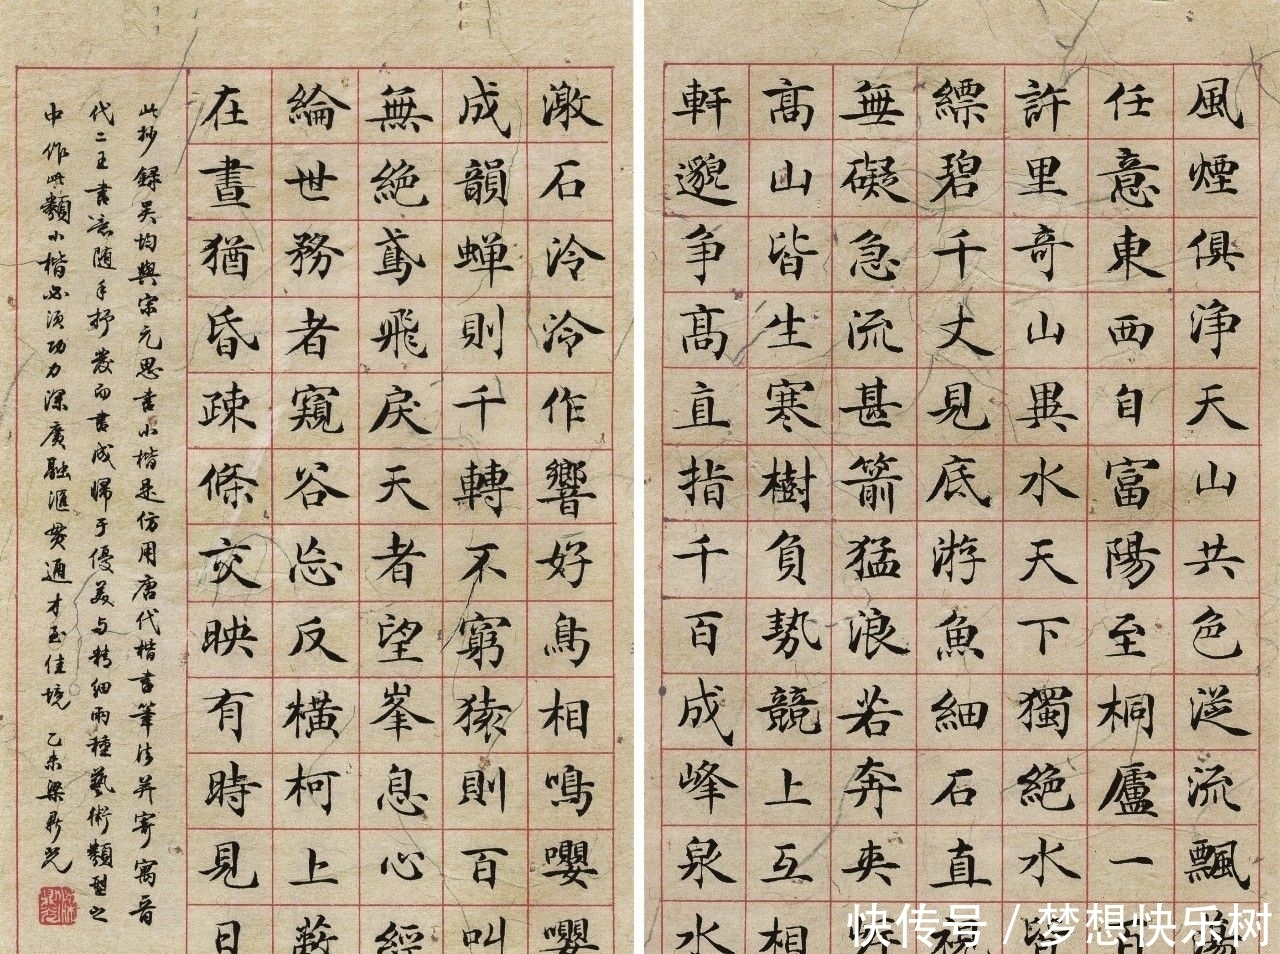 風煙俱淨天山共色從流飄蕩
任意東西自富陽至桐廬一百
許里奇山異水天下獨絕水皆
縹碧千丈見底游魚細石直視
無礙急流甚箭猛浪若奔夾岸
高山皆生寒樹負勢競上互相
軒邈爭高直指千百成峰泉水
激石泠泠作響好鳥相鳴嚶嚶
成韻蟬則千轉不窮猿則百叫
無絕鳶飛戾天者望峯息心經
綸世務者窺谷忘反橫柯上蔽
在晝猶昏疎條交映有時見日
此抄錄吳均與宋元思書小楷是仿用唐代楷書筆法并寄寓晉
代二王書意随手抒發而書成歸于優美与精細兩種藝術類型之
中作此類小楷必須功力深廣融滙貫通才至佳境 乙未梁鼎光
快传号 / 梦想快乐树